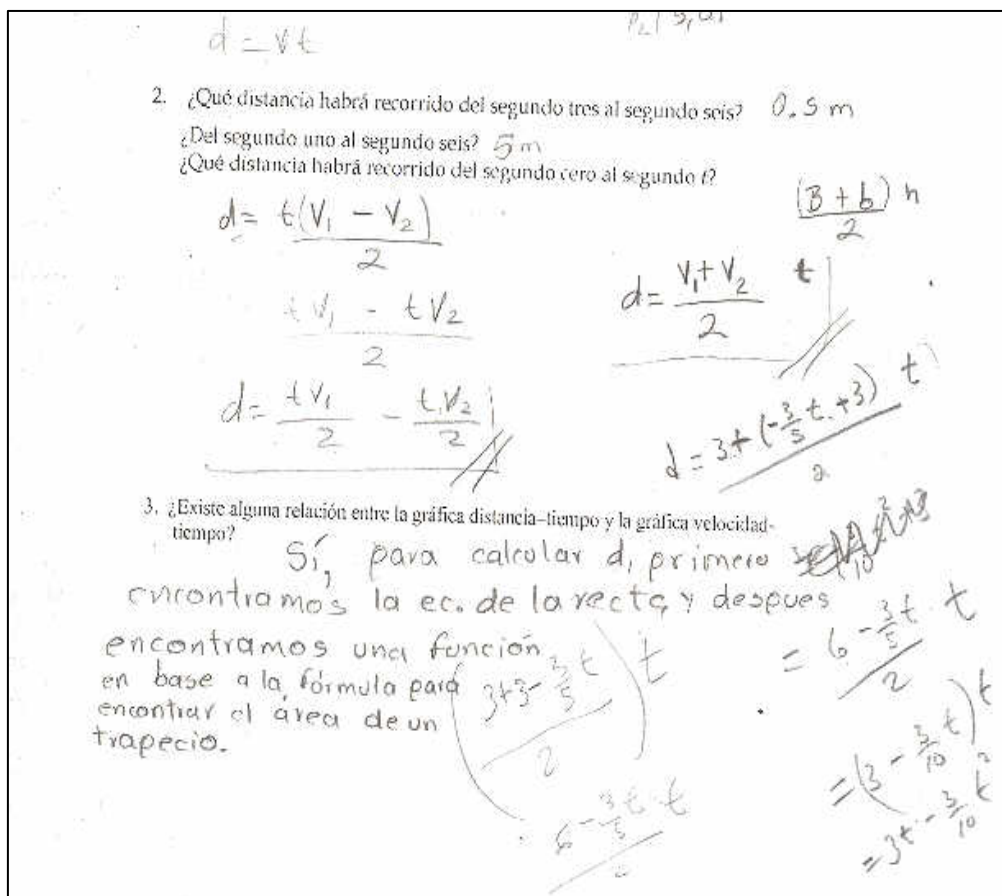 d = vt
2. ¿Qué distancia habrá recorrido del segundo tres al segundo seis? 0.5 m
¿Del segundo uno al segundo seis? 5m
¿Qué distancia habrá recorrido del segundo cero al segundo t?
d = t(V₁ - V₂) / 2
(B + b) h / 2
tV₁ - tV₂ / 2
d = V₁ + V₂ / 2 t
d = tV₁ / 2 - tV₂ / 2
d = 3 + (-3/5 t + 3) / 2 t
3. ¿Existe alguna relación entre la gráfica distancia–tiempo y la gráfica velocidad-
tiempo?
Sí, para calcular d, primero
encontramos la ec. de la recta, y despues
encontramos una función
en base a la fórmula para
encontrar el área de un
trapecio.
(3+3-3/5 t / 2) t
6 - 3/5 t · t
= 6 - 3/5 t / 2 · t
= (3 - 3/10 t) t
= 3t - 3/10 t